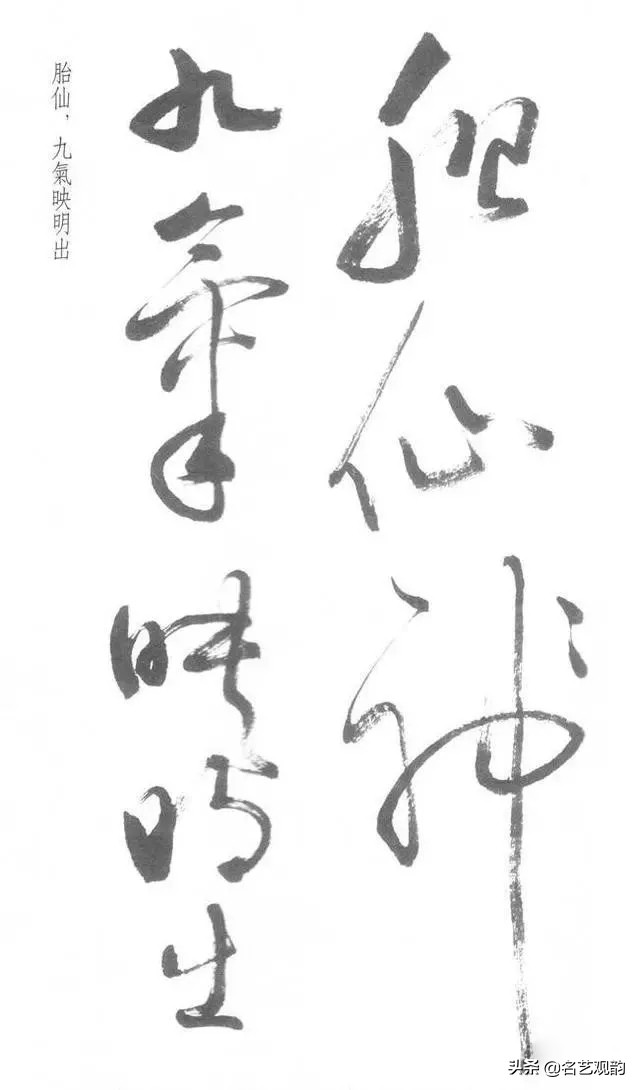 胎仙神
九氣映明出
胎仙,九氣映明出
头条 @名艺观韵